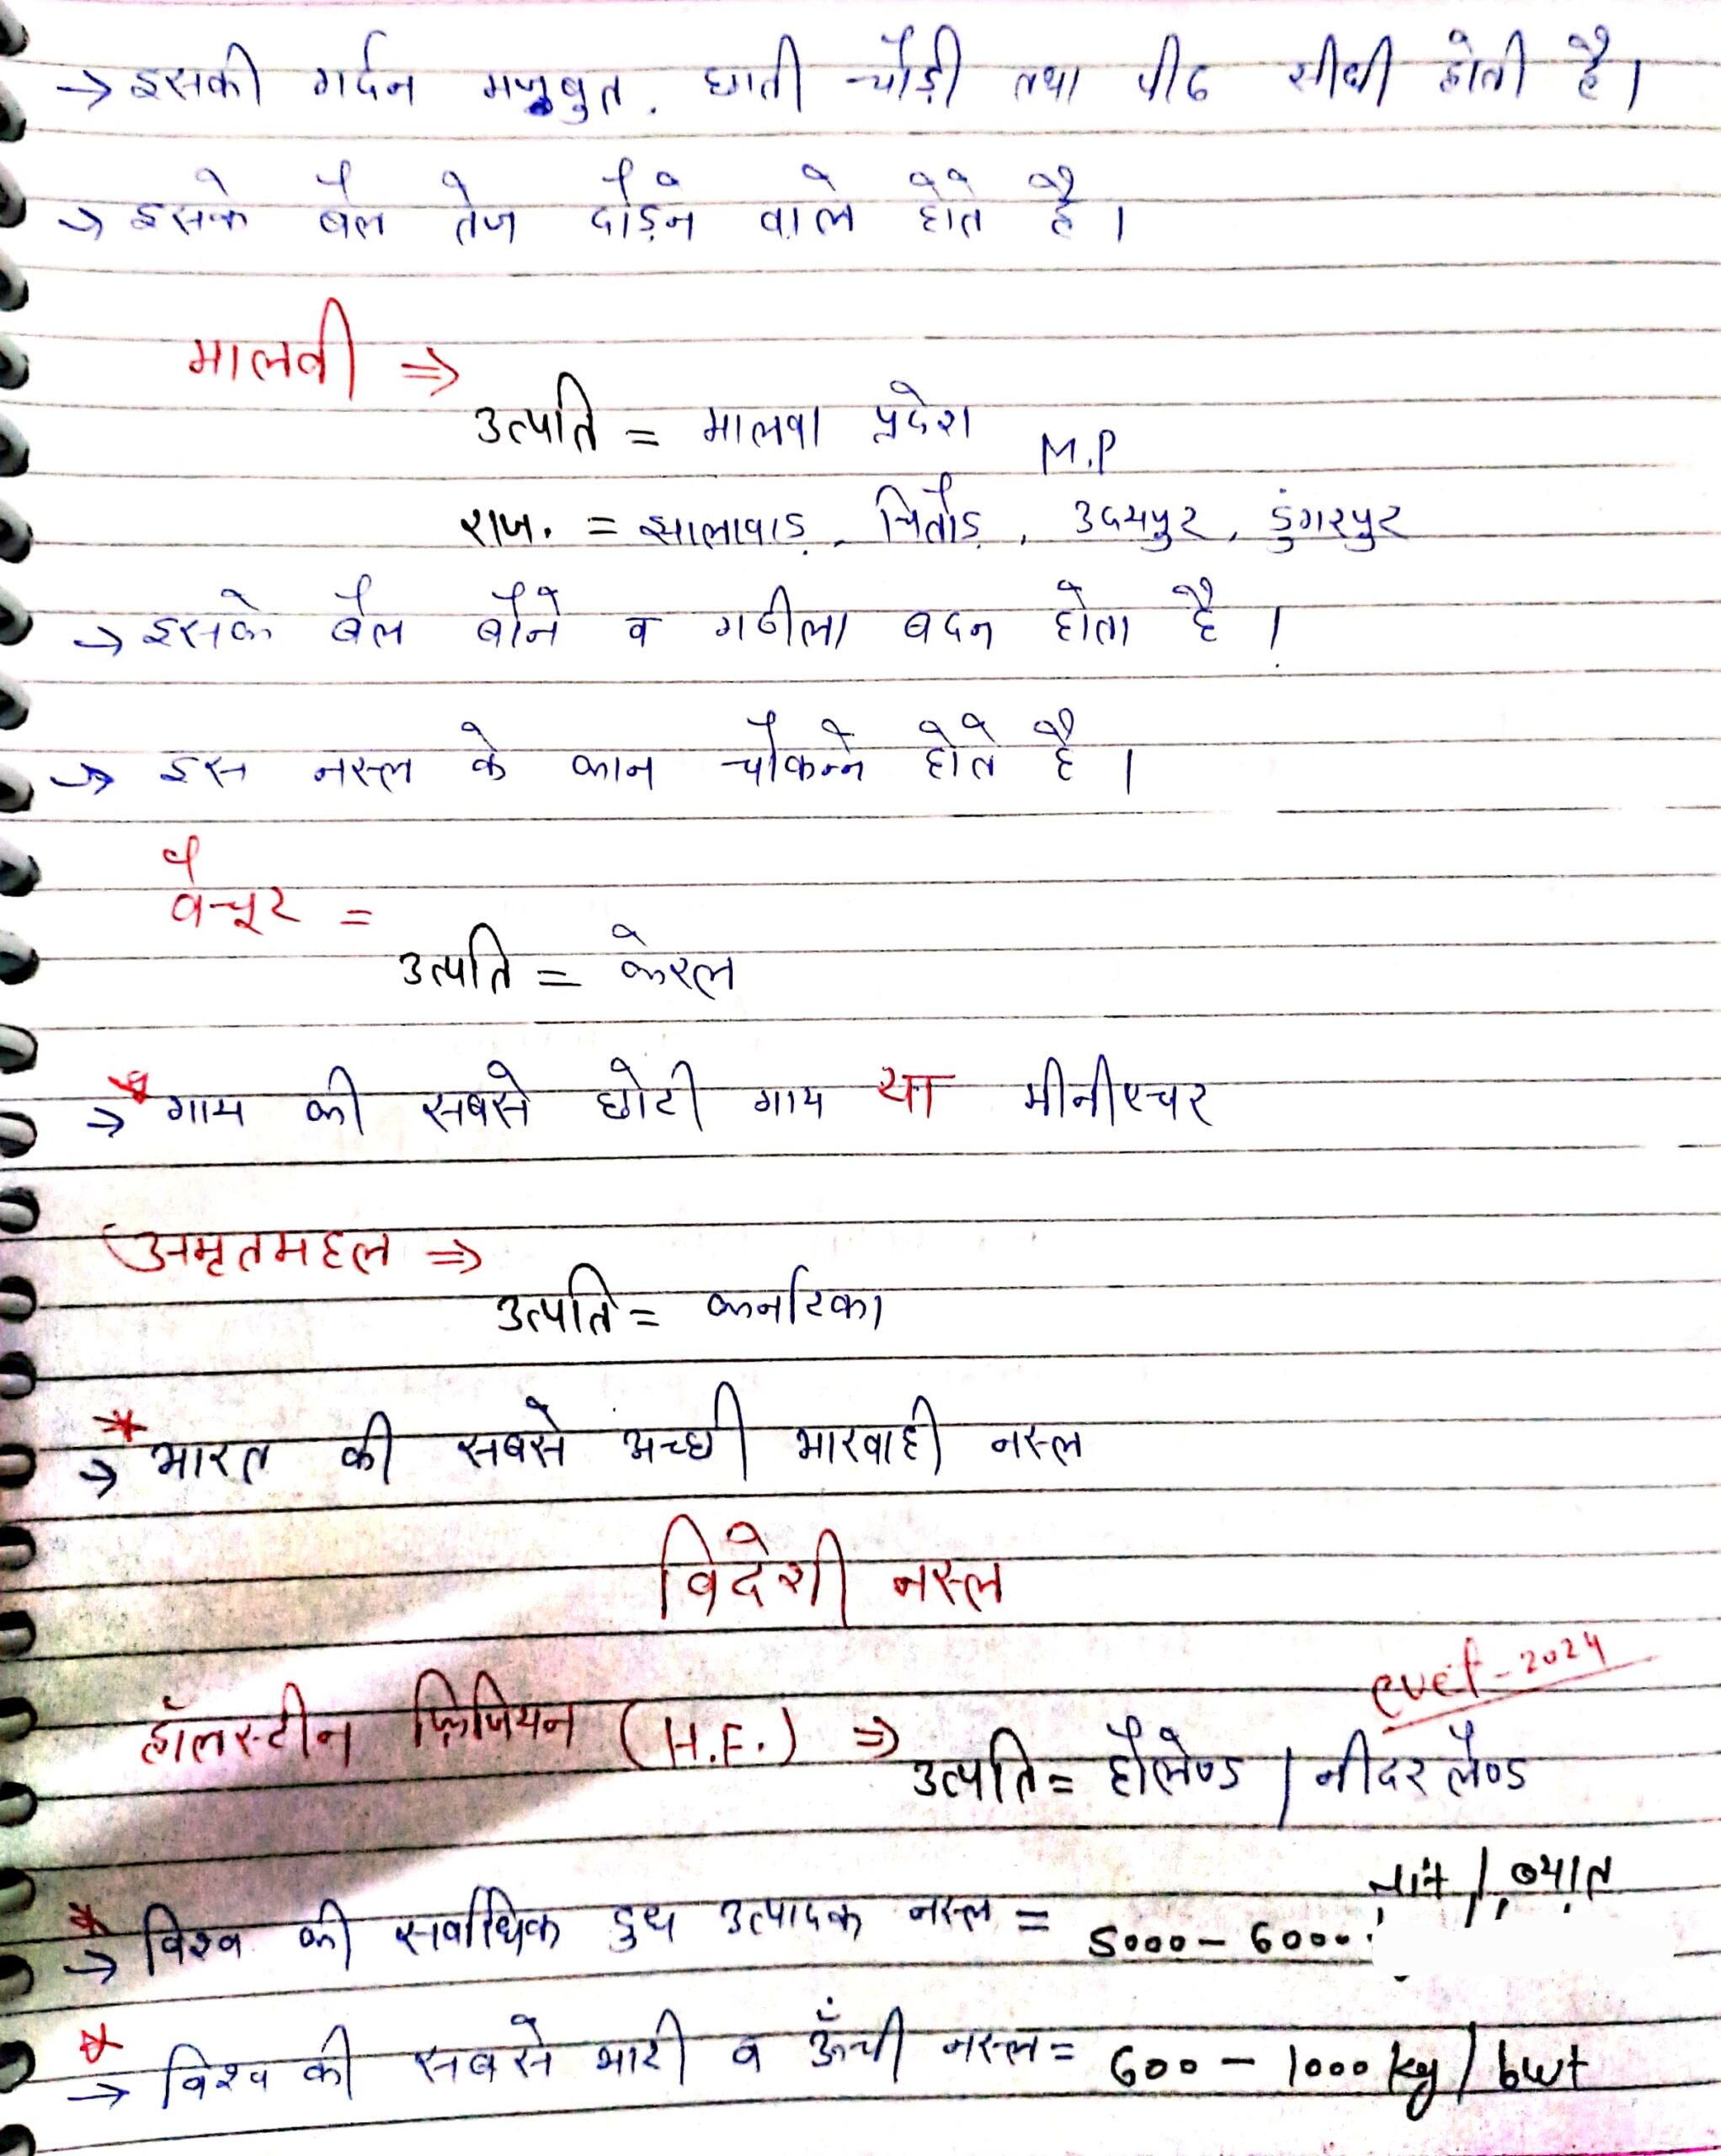 → इसकी गर्दन मजबुत, छाती चौड़ी तथा पीठ सीधी होती है।
→ इसके बैल तेज दौड़ने वाले होते है।
मालवी ⇒
उत्पति = मालवा प्रदेश M.P
राज. = झालावाड़, चितौड़, उदयपुर, डुंगरपुर
→ इसके बैल बौने व गठीला बदन होता है।
→ इस नस्ल के कान चौकन्ने होते है।
वैचूर =
उत्पति = केरल
→ * गाय की सबसे छोटी गाय या मीनीएचर
अमृतमहल ⇒
उत्पति = कर्नाटका
→ * भारत की सबसे अच्छी भारवाही नस्ल
विदेशी नस्ल
-2024
हॉलस्टीन फ्रिजियन (H.F.) ⇒ उत्पति = हौलेण्ड / नीदरलैण्ड
→ * विश्व की सर्वाधिक दुध उत्पादक नस्ल = 5000 - 6000 / ब्यात
→ * विश्व की सबसे भारी व ऊँची नस्ल = 600 - 1000 kg / bwt